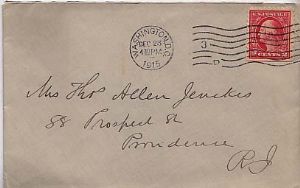 WASHINGTON, D.C.
DEC 28
4 PM
1915
3
D
U.S. POSTAGE
Mrs Thos Allen Jenckes
88 Prospect St
Providence
R.I